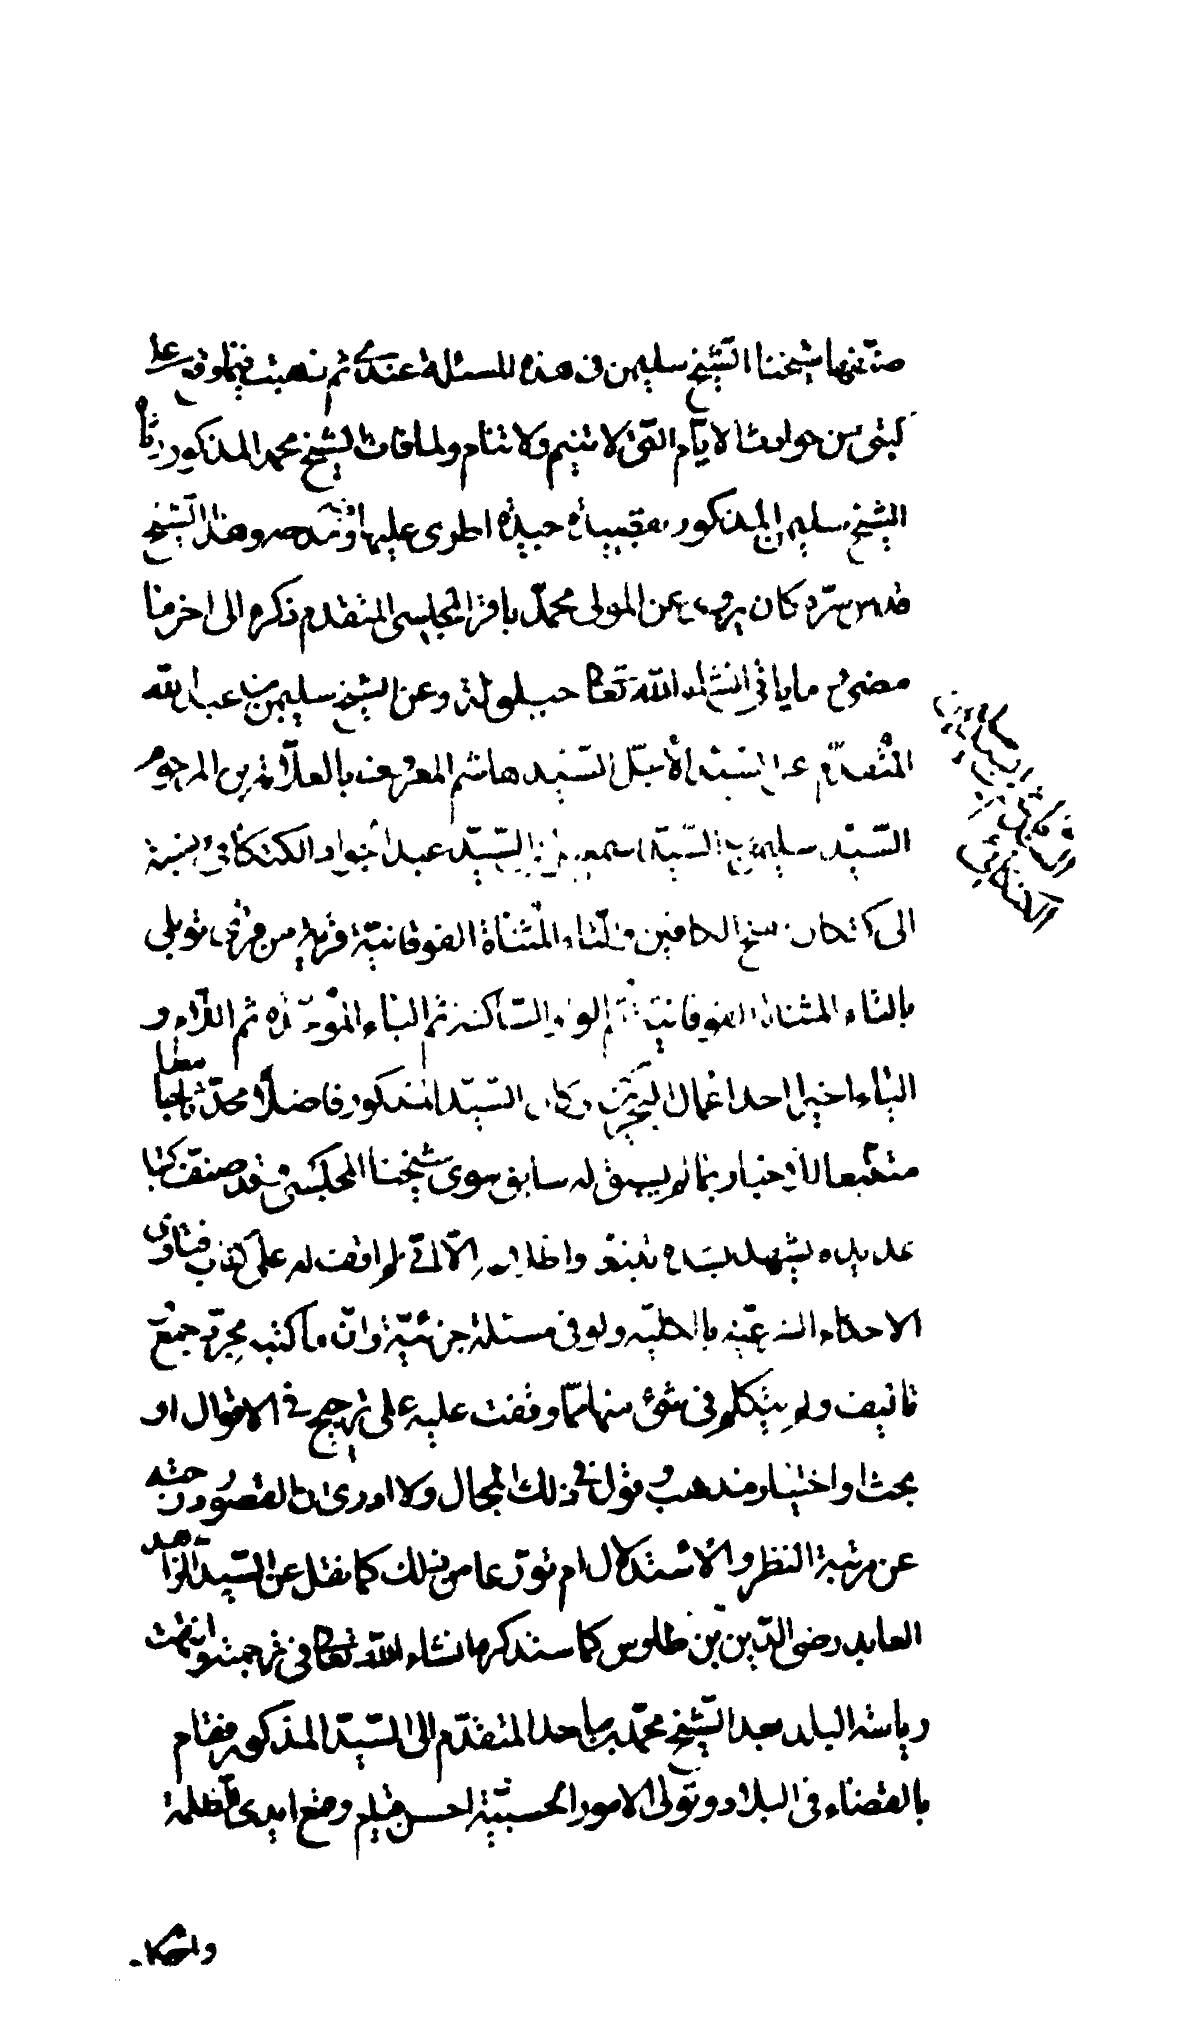 صنّفها شيخنا الشيخ سليمن في هذه المسئلة عندي ثم ذهبت فيما وقع على
كتبي من حوادث الايّام التي لا تنيم ولا تنام ولما مات الشيخ محمد المذكور رثاه
الشيخ سليمن المذكور بقصيدة جيدة اطرى عليه في مدحه وهذا الشيخ
قدس سرّه كان يروي عن المولى محمّد باقر المجلسي المتقدم ذكره الى اخر ما
مضى وما ياتي انشاء الله تعالى حيلولة وعن الشيخ سليمن بن عبد الله
المتقدّم عن السيّد الأجلّ السيّد هاشم المعروف بالعلّامة بن المرحوم
السيّد سليمن بن السيّد اسمعيل بن السيّد عبد الجواد الكتكاني نسبة
الى كتكان بفتح الكافين والتاء المثناة الفوقانيّة قرية من قرى توبلى
بالتاء المثناة الفوقانية ثم الواو الساكنة ثم الباء الموحدة ثم اللام و
الياء اخيرا احد اعمال البحرين وكان السيّد المذكور فاضلاً محدّثاً جامعا
متتبعا للأخبار بما لم يسبق له سابق سوى شيخنا المجلسي وقد صنّف كتبا
عديدة تشهد بشدة تتبعه واطلاعه الّا انّي لم اقف له على كتاب فتاوى
الاحكام الشرعيّة بالكليّه ولو في مسئلة جزئيّة وانّ ما كتبه مجرّد جمع
تاليف ولم يتكلم في شئ منها ممّا وقفت عليه على ترجيح في الاقوال او
بحث او اختيار مذهب وقول في ذلك المجال ولا ادرى ان القصور درجته
عن مرتبة النظر والاستدلال ام تورّعا من ذلك كما نقل عن السيّد الزاهد
العابد رضى الدين بن طاوس كما سنذكره انشاء الله تعالى في ترجمته وانتهت
رياسة البلد بعد الشيخ محمّد بن ماجد المتقدّم الى السيّد المذكور فقام
بالقضاء في البلاد وتولى الامور الحسبيّة احسن قيام وقمع ايدي الظلمة
والحكام